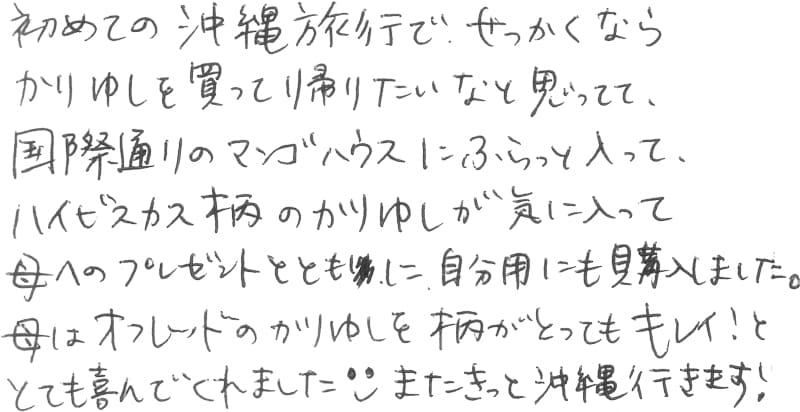 初めての沖縄旅行で、せっかくなら
かりゆしを買って帰りたいなと思ってて、
国際通りのマンゴハウスにふらっと入って、
ハイビスカス柄のかりゆしが気に入って
母へのプレゼントとともに自分用にも購入しました。
母はオフレードのかりゆしを柄がとってもキレイ！と
とても喜んでくれました またきっと沖縄行きます！